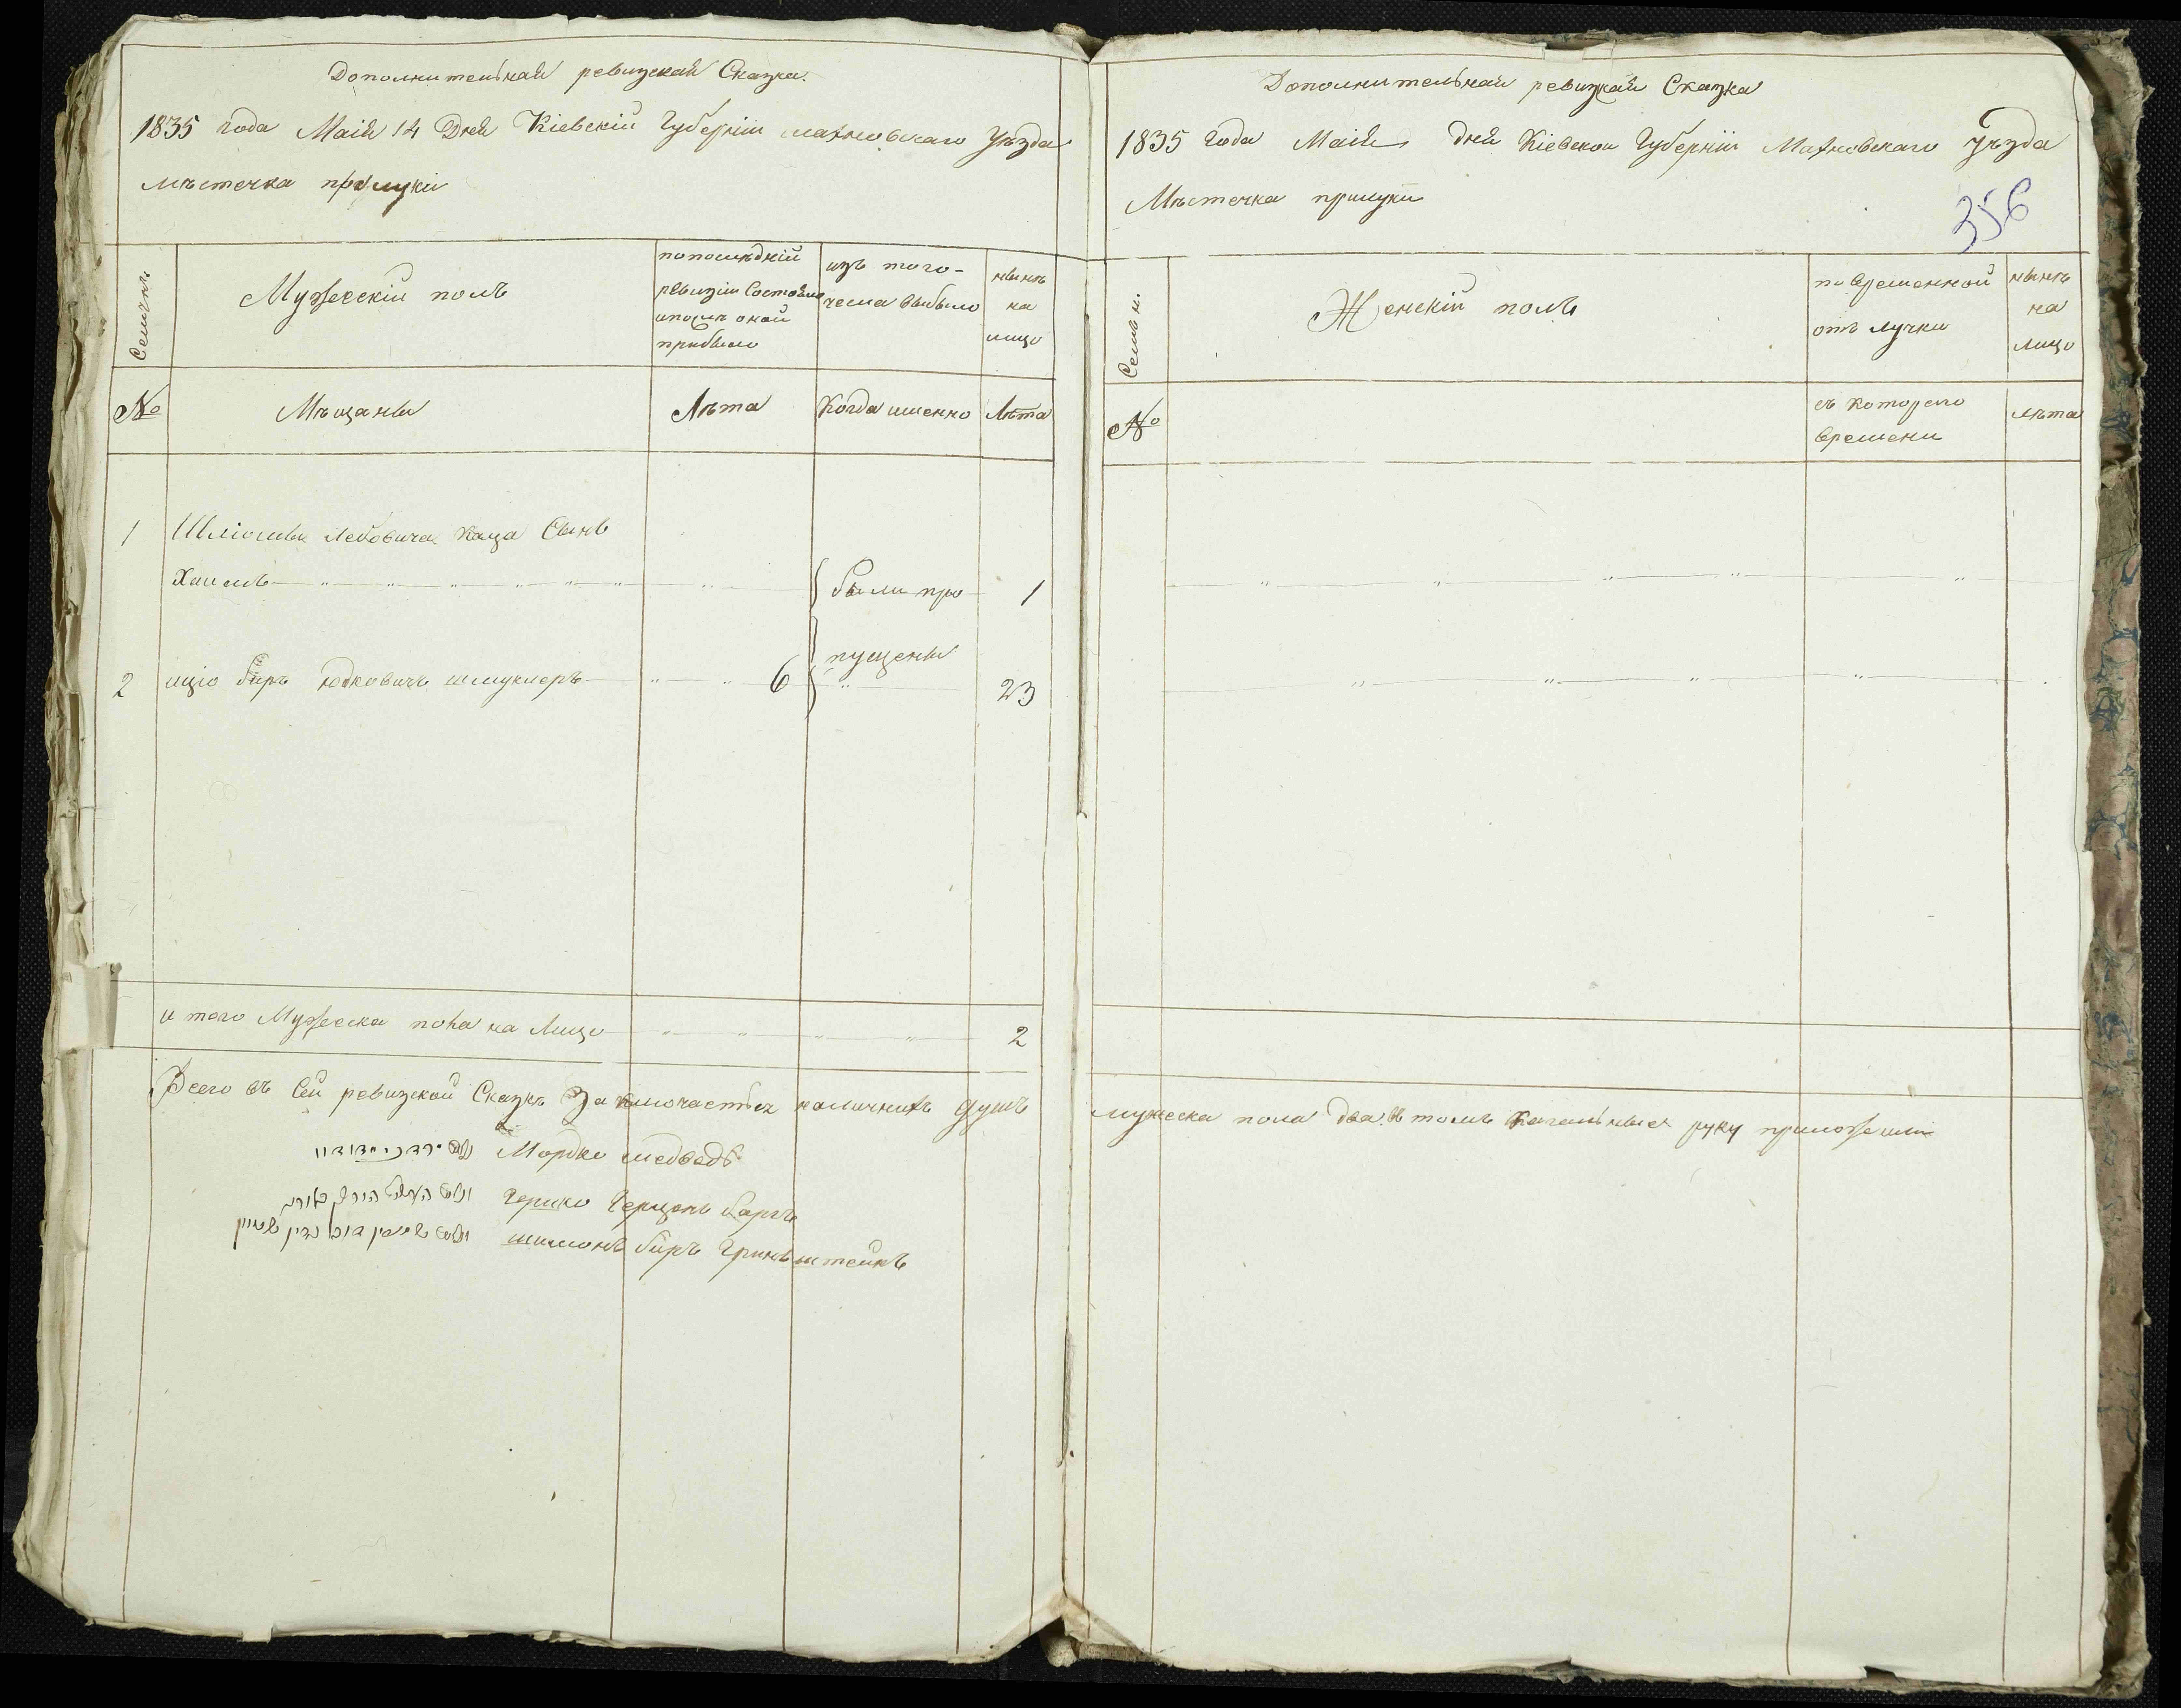 Дополнительная ревизская Сказка.
1835 года Маія 14 Дня Кіевскій Губерніи махновскаго Уѣзда
мѣстечка прилуки
Семьи №
Мужескій полъ
попослѣдній
ревизіи Состояло
ипослѣ оной
прибыло
изъ того-
числа выбыло
нынѣ
на
лицо
№
Мѣщаны
Лѣта
Когда именно
Лѣта
1
Шліомы Лейбовича Каца Сынъ
Хаимъ
были про
1
2
иціо бѣръ Юдковичъ шмуклеръ
6
пущены
23
и того Мужеска пола на Лицо
2
Всего въ Сей ревизской Сказкѣ Заключаетьса наличныхъ душъ
Мордко медвадь
Гершко Герцонъ
шимонъ бѣръ Гринъштейнъ
Дополнительная ревизкая Сказка
1835 Года Маія дня Кіевскои Губерніи Махновскаго Уѣзда
Мѣстечка прилуки
356
Семьи.
Женскій полъ
по временной
отъ лучки
нынѣ
на
лицо
№
съ которого
времени
лѣта
мужеска пола два. въ томъ Кагальные руку приложили